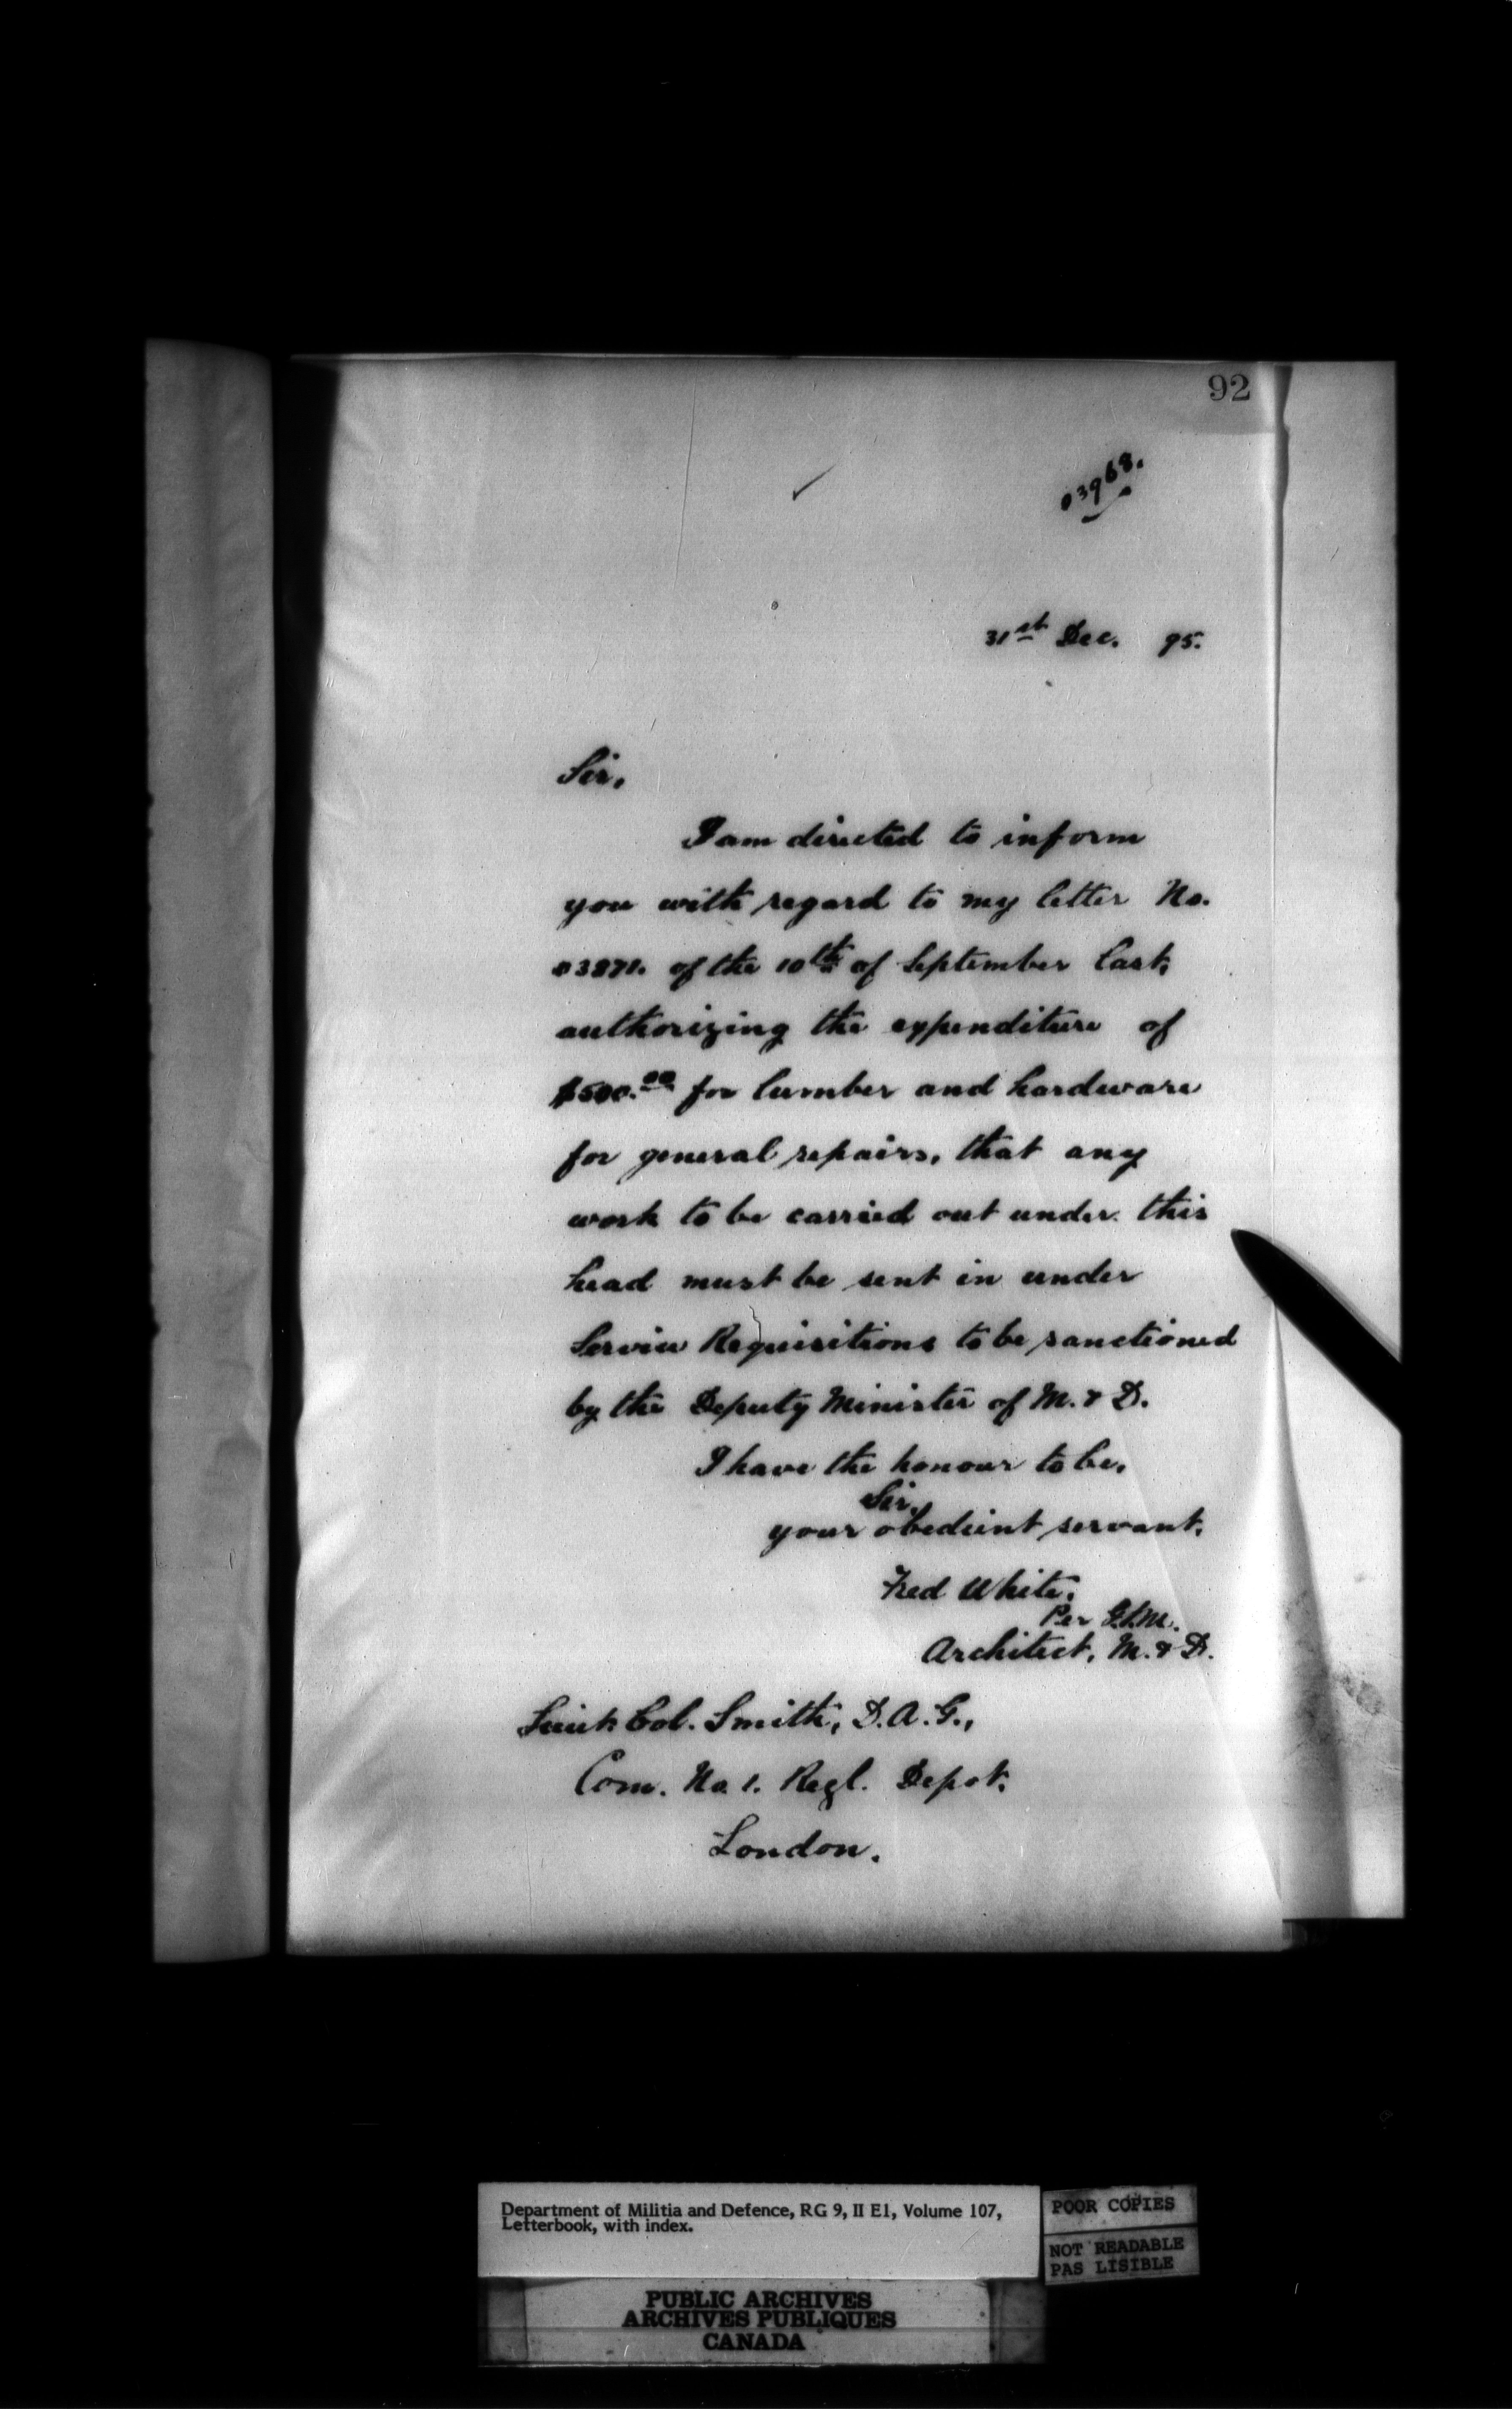 92
03968.
31st Dec. 95.
Sir,
I am directed to inform
you with regard to my letter No.
03871. of the 10th of September last,
authorizing the expenditure of
$500.00 for lumber and hardware
for general repairs, that any
work to be carried out under this
head must be sent in under
Service Requisitions to be sanctioned
by the Deputy Minister of M. & D.
I have the honour to be,
Sir,
your obedient servant,
Fred White,
Per
Architect, M. & D.
Lieut. Col. Smith, D.A.G.,
Com. No. 1. Regl. Depot,
London.
Department of Militia and Defence, RG 9, II E1, Volume 107,
Letterbook, with index.
POOR COPIES
NOT READABLE
PAS LISIBLE
PUBLIC ARCHIVES
ARCHIVES PUBLIQUES
CANADA